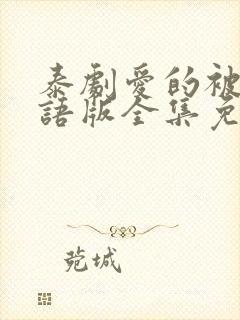 泰劇愛的被
語版全集免
蒐城